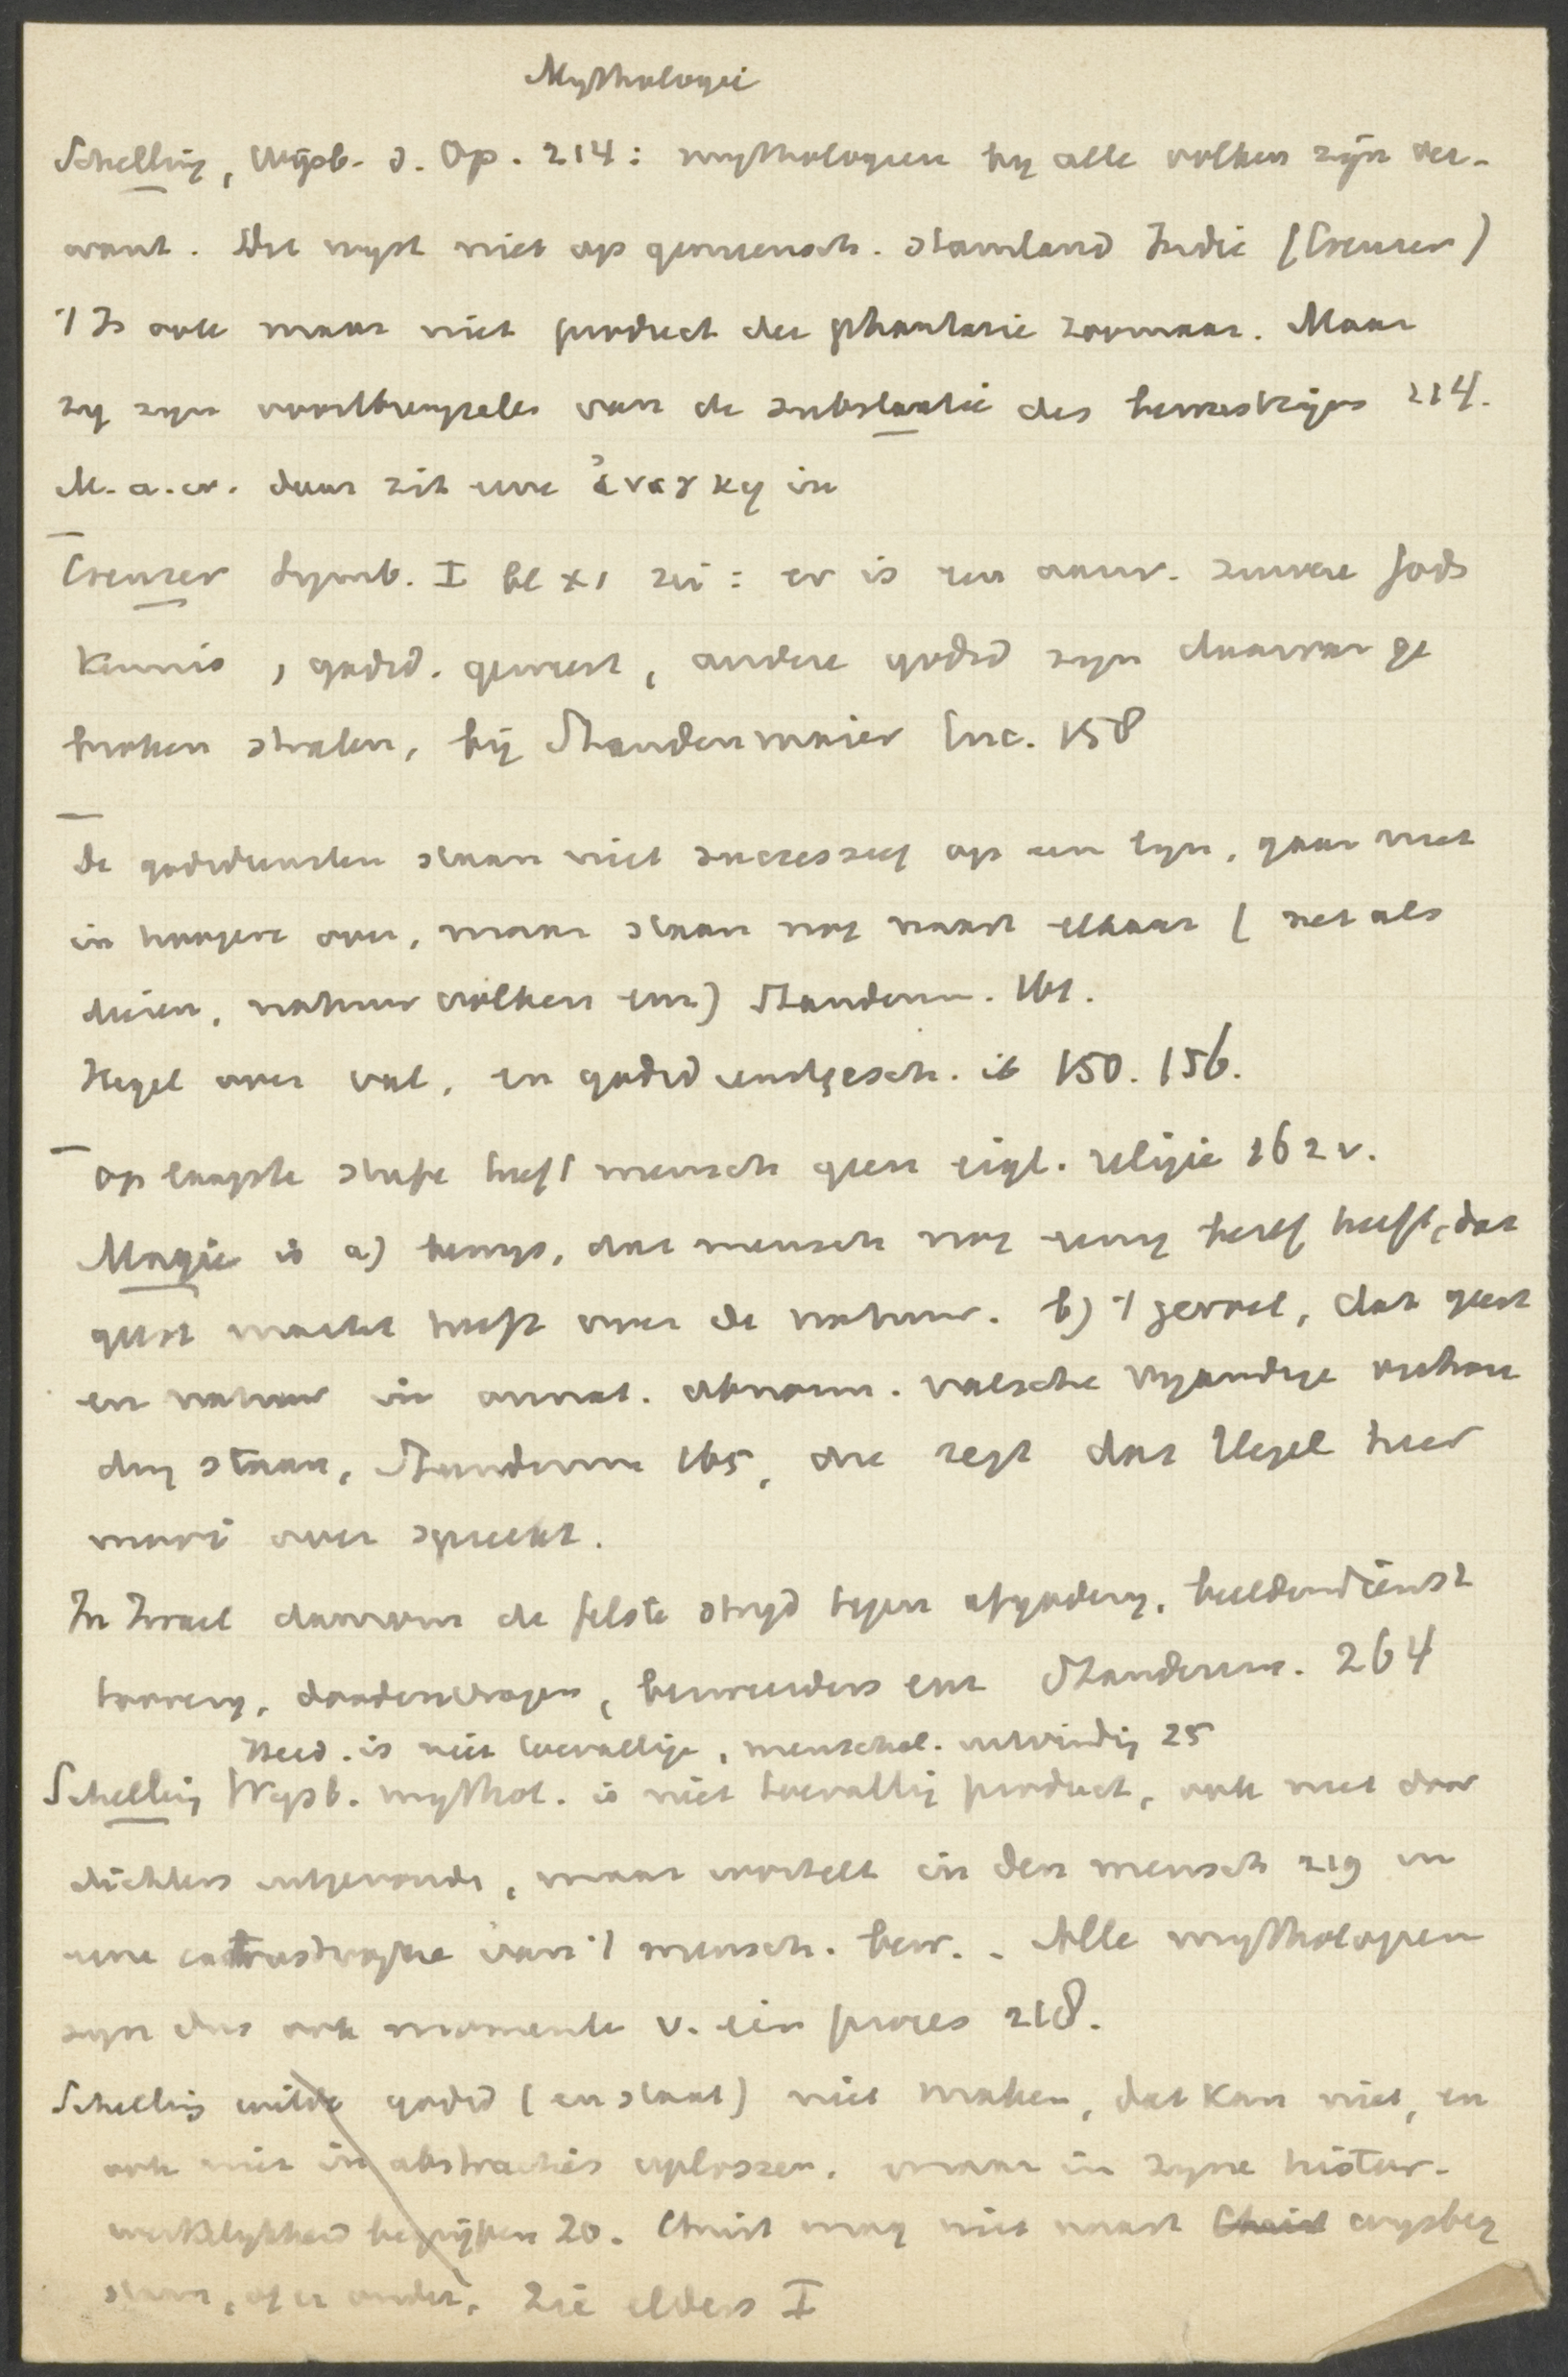 Mythologie
Schelling, Wijsb. d. Op. 214: mythologieen bij alle volken zijn ver-
want. Dit wijst niet op gemeensch. stamland Indie (Creuzer)
't Is ook maar niet product der phantasie zoomaar. Maar
zij zijn voortbrengselen van de substantie des bewustzijns 214.
M.a.w. daar zit eene ἀναγκη in
Creuzer Symb. I bl XI zei: er is een zuivere Gods
kennis, godsd. geweest, andere godsd zijn daarvan ge
broken stralen, bij Staudenmaier Enc. 158
De godsdiensten staan niet successief op een lijn, gaan niet
in hoogere over, maar staan nog naast elkaar (net als
dieren, natuur volken enz) Staudenm. 161.
Hegel over val, en godsdienstgesch. ib 150. 156.
Op laagste stufe heeft mensch geen eigl. religie 162 v.
Magie is a) bewijs, dat mensch nog eenig besef heeft, dat
geest macht heeft over de natuur. b) 't gevoel, dat geest
en natuur in onnat. abnorm. valsche vijandige verhou
ding staan, Staudenm 165, die zegt dat Hegel hier
mooi over spreekt.
In Israel daarom de felste strijd tegen afgodery, beeldendienst
toovery, doodenvragen, bezweerders enz Staudenm. 264
Heid. is niet toevallige, menschel. uitvinding 25
Schelling Wijsb. mythol. is niet toevallig product, ook niet door
dichters uitgevonden, maar wortelt in den mensch 219 in
eene catastrophe van 't mensch. bew. . Alle mythologieen
zijn dus ook momenten v. een proces 218.
Schelling wilde godsd (en staat) niet maken, dat kan niet, en
ook niet in abstracties oplossen, maar in zijne histor.
werklykheid begrijpen 20. Christ mag niet naast Christ wijsbeg
staan, of er onder, Zie elders I